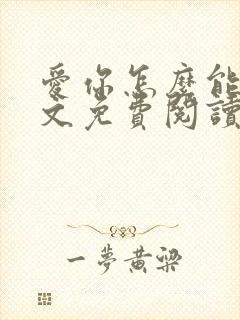 愛你怎麼能
文免費閱讀
一夢黃梁